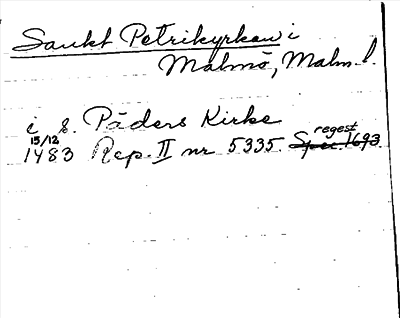 Sankt Petrikyrkan i
Malmö, Malm. l
i S. Päders Kirke
15/12 regest
1483 Rep. II nr 5335. Spec. 1693.